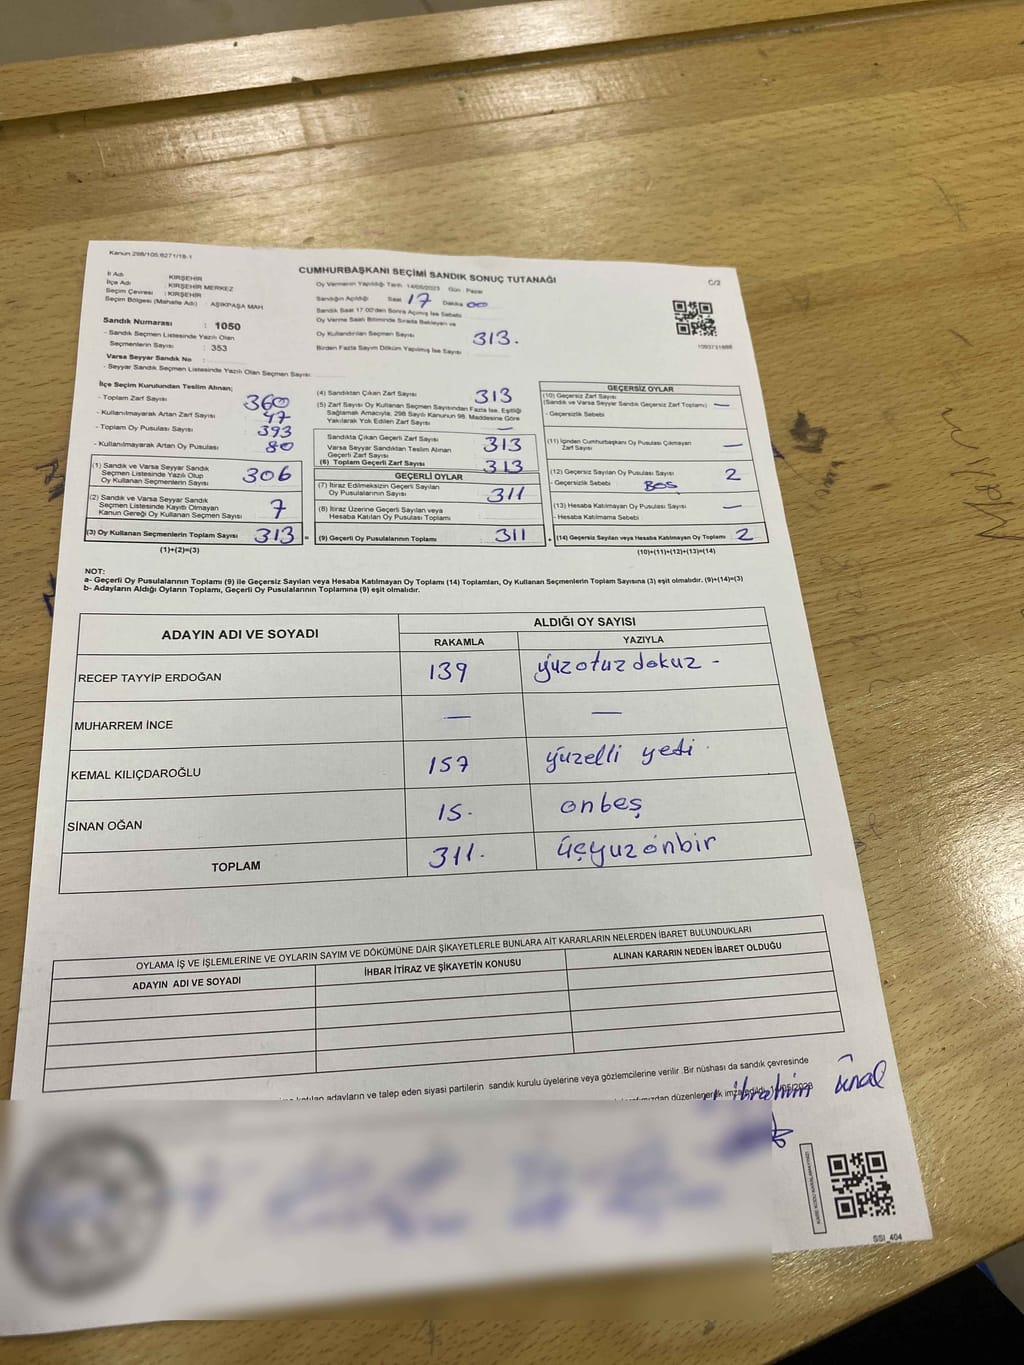 Kanun 298/105;6271/18-1
CUMHURBAŞKANI SEÇİMİ SANDIK SONUÇ TUTANAĞI
C/2
İl Adı : KIRŞEHİR
İlçe Adı : KIRŞEHİR MERKEZ
Seçim Çevresi : KIRŞEHİR
Seçim Bölgesi (Mahalle Adı) : AŞIKPAŞA MAH
Sandık Numarası : 1050
- Sandık Seçmen Listesinde Yazılı Olan
Seçmenlerin Sayısı : 353
Varsa Seyyar Sandık No :
- Seyyar Sandık Seçmen Listesinde Yazılı Olan Seçmen Sayısı :
Oy Vermenin Yapıldığı Tarih : 14/05/2023 Gün : Pazar
Sandığın Açıldığı Saat 17 Dakika 00
Sandık Saat 17:00'den Sonra Açılmış İse Sebebi
Oy Verme Saati Bitiminde Sırada Bekleyen ve
Oy Kullandırılan Seçmen Sayısı 313.
Birden Fazla Sayım Döküm Yapılmış İse Sayısı
1093731888
İlçe Seçim Kurulundan Teslim Alınan;
- Toplam Zarf Sayısı 360
- Kullanılmayarak Artan Zarf Sayısı 47
- Toplam Oy Pusulası Sayısı 393
- Kullanılmayarak Artan Oy Pusulası 80
(1) Sandık ve Varsa Seyyar Sandık
Seçmen Listesinde Yazılı Olup
Oy Kullanan Seçmenlerin Sayısı 306
(2) Sandık ve Varsa Seyyar Sandık
Seçmen Listesinde Kayıtlı Olmayan
Kanun Gereği Oy Kullanan Seçmen Sayısı 7
(3) Oy Kullanan Seçmenlerin Toplam Sayısı 313 =
(1)+(2)=(3)
(4) Sandıktan Çıkan Zarf Sayısı 313
(5) Zarf Sayısı Oy Kullanan Seçmen Sayısından Fazla İse, Eşitliği
Sağlamak Amacıyla, 298 Sayılı Kanunun 98. Maddesine Göre
Yakılarak Yok Edilen Zarf Sayısı —
Sandıkta Çıkan Geçerli Zarf Sayısı 313
Varsa Seyyar Sandıktan Teslim Alınan
Geçerli Zarf Sayısı
(6) Toplam Geçerli Zarf Sayısı 313
GEÇERLİ OYLAR
(7) İtiraz Edilmeksizin Geçerli Sayılan
Oy Pusulalarının Sayısı 311
(8) İtiraz Üzerine Geçerli Sayılan veya
Hesaba Katılan Oy Pusulası Toplamı
(9) Geçerli Oy Pusulalarının Toplamı 311 +
GEÇERSİZ OYLAR
(10) Geçersiz Zarf Sayısı
(Sandık ve Varsa Seyyar Sandık Geçersiz Zarf Toplamı) —
- Geçersizlik Sebebi
(11) İçinden Cumhurbaşkanı Oy Pusulası Çıkmayan
Zarf Sayısı —
(12) Geçersiz Sayılan Oy Pusulası Sayısı 2
- Geçersizlik Sebebi BOŞ
(13) Hesaba Katılmayan Oy Pusulası Sayısı —
- Hesaba Katılmama Sebebi
(14) Geçersiz Sayılan veya Hesaba Katılmayan Oy Toplamı 2
(10)+(11)+(12)+(13)=(14)
NOT:
a- Geçerli Oy Pusulalarının Toplamı (9) ile Geçersiz Sayılan veya Hesaba Katılmayan Oy Toplamı (14) Toplamları, Oy Kullanan Seçmenlerin Toplam Sayısına (3) eşit olmalıdır. (9)+(14)=(3)
b- Adayların Aldığı Oyların Toplamı, Geçerli Oy Pusulalarının Toplamına (9) eşit olmalıdır.
ADAYIN ADI VE SOYADI
ALDIĞI OY SAYISI
RAKAMLA YAZIYLA
RECEP TAYYİP ERDOĞAN 139 yüzotuz dokuz -
MUHARREM İNCE — —
KEMAL KILIÇDAROĞLU 157 yüzelli yedi.
SİNAN OĞAN 15. onbeş
TOPLAM 311. üçyuzonbir
OYLAMA İŞ VE İŞLEMLERİNE VE OYLARIN SAYIM VE DÖKÜMÜNE DAİR ŞİKAYETLERLE BUNLARA AİT KARARLARIN NELERDEN İBARET BULUNDUKLARI
ADAYIN ADI VE SOYADI İHBAR İTİRAZ VE ŞİKAYETİN KONUSU ALINAN KARARIN NEDEN İBARET OLDUĞU
adayların ve talep eden siyasi partilerin sandık kurulu üyelerine veya gözlemcilerine verilir. Bir nüshası da sandık çevresinde
düzenlenerek imza edildi.
İbrahim Ünal
SSI_404